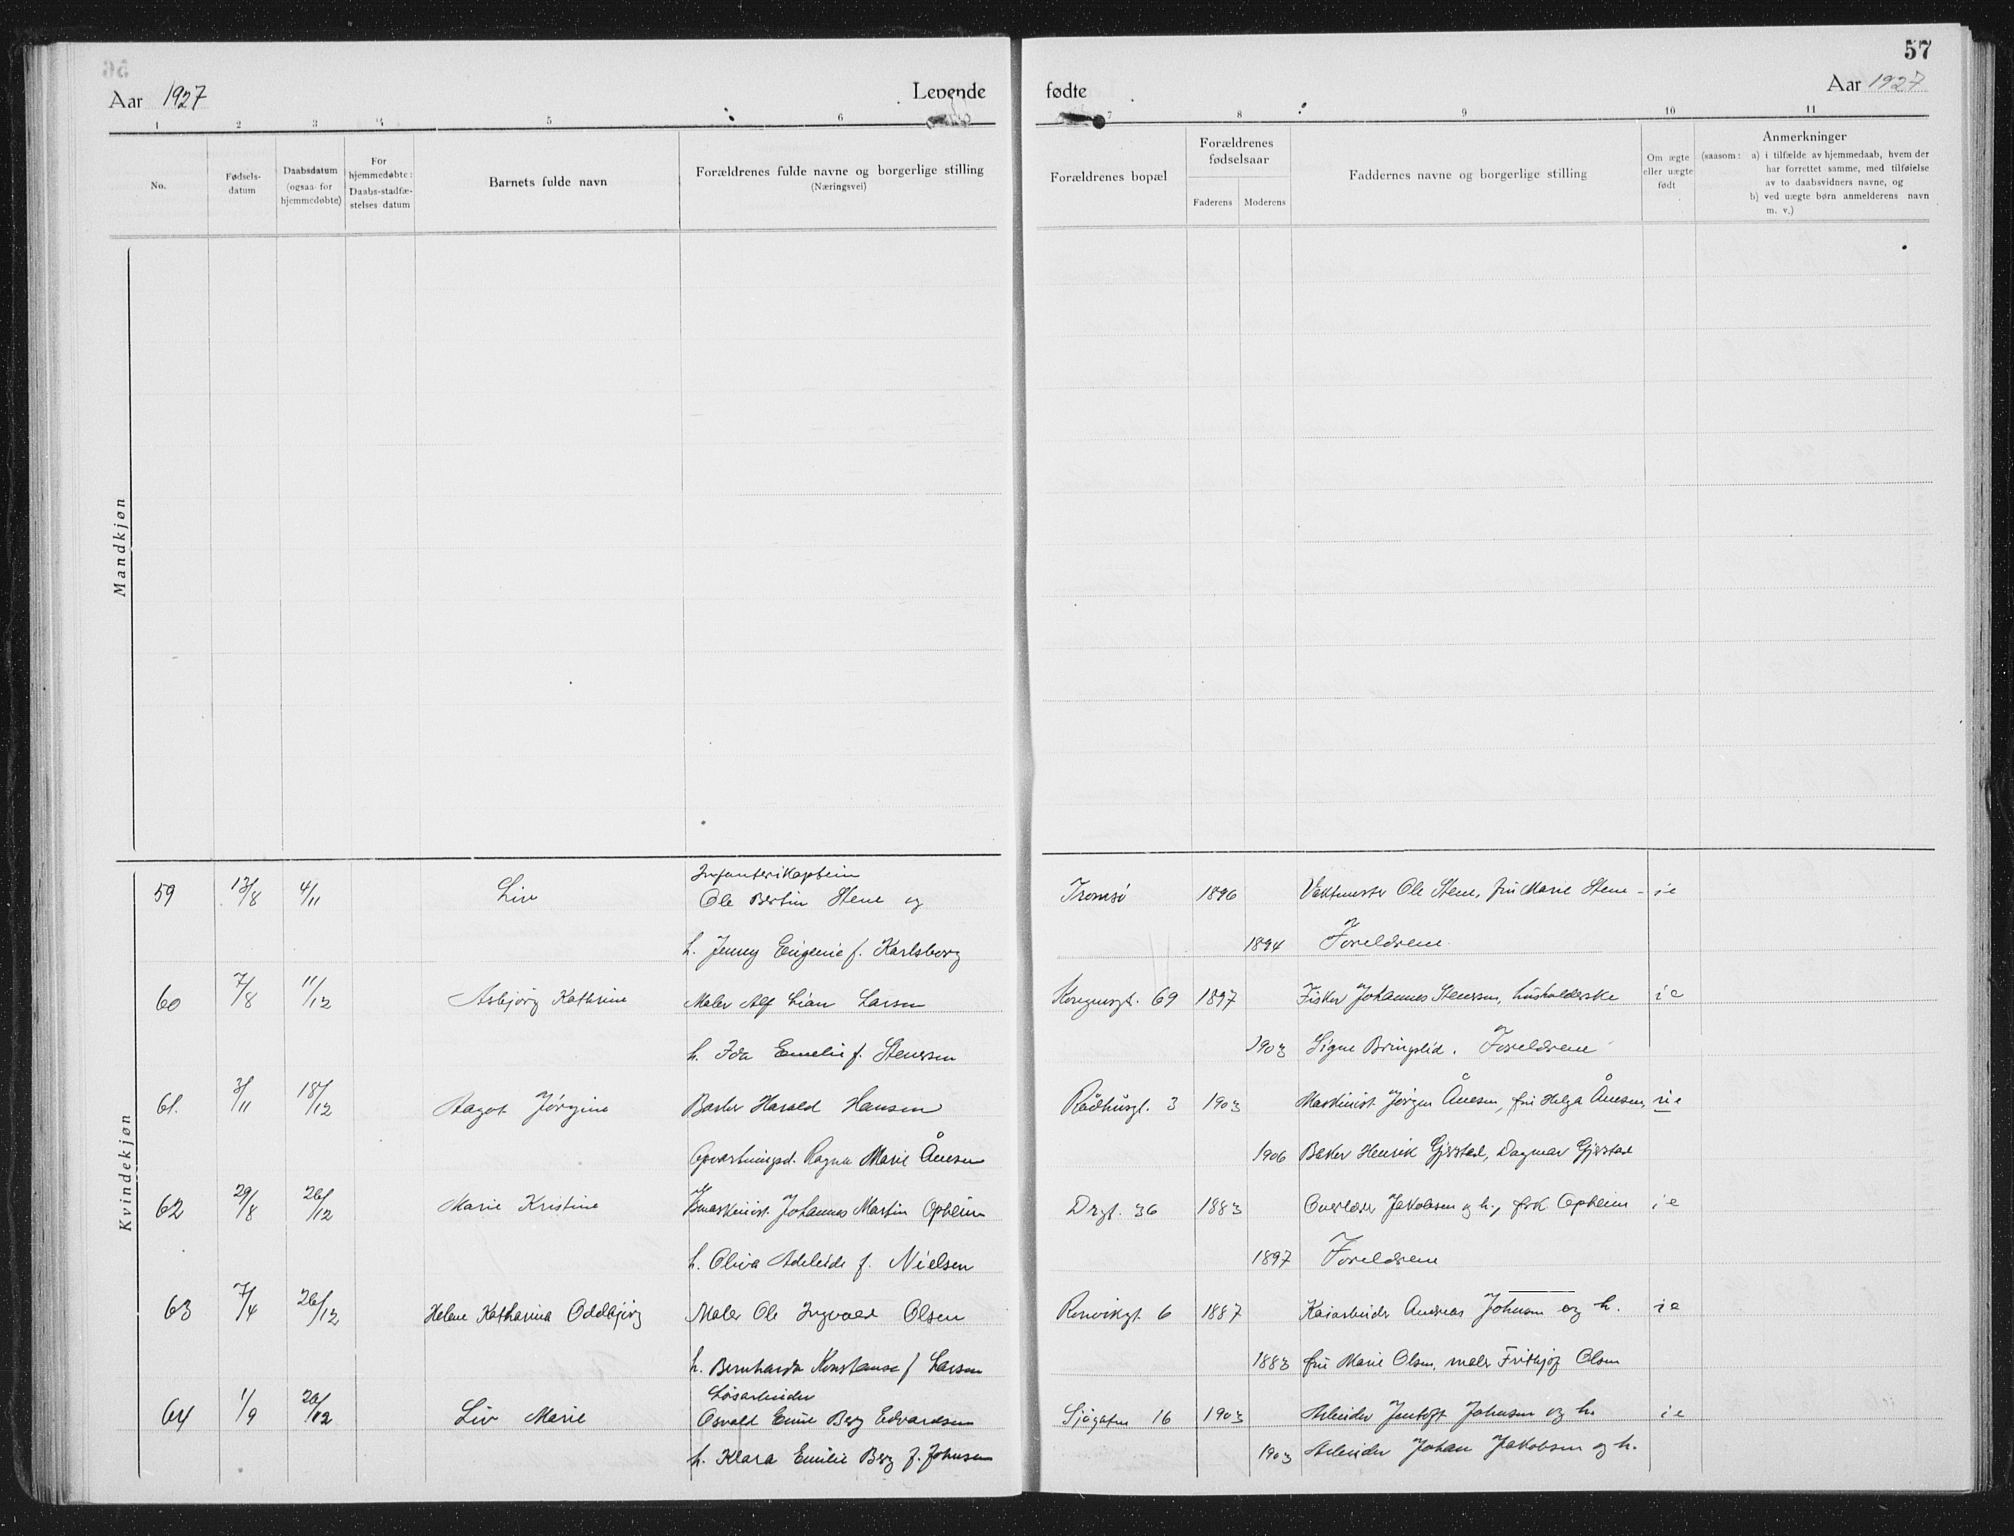 57
Aar 1927 Levende fødte Aar 1927
1 2 3 4 5 6 7 8 9 10 11
No.
Fødsels-
datum
Daabsdatum
(ogsaa for
hjemmedøbte)
For
hjemmedøbte:
Daabs-stadfæ-
stelses datum
Barnets fulde navn
Forældrenes fulde navne og borgerlige stilling
(Næringsvei)
Forældrenes bopæl
Forældrenes
fødselsaar
Faderens Moderens
Faddernes navne og borgerlige stilling
Om ægte
eller uægte
født
Anmerkninger
(saasom: a) i tilfælde av hjemmedaab, hvem der
har forrettet samme, med tilføielse
av to daabsvidners navne, og
b) ved uægte børn anmelderens navn
m. v.)
Mandkjøn
Kvindekjøn
Infanterikaptein
59 13/8 4/11 Liv Ole Bertin Stene og Tromsø 1896 Vaktmester Ole Stene, fru Marie Stene - ie
h. Jenny Eugenie f. Karlsborg 1894 Foreldrene.
60 7/8 11/12 Asbjørg Kathrine Maler Alf Lian Larsen Kongensgt. 69 1897 Fisker Johannes Stenersen, husholderske ie
h. Ida Emelie f. Stenersen 1903 Signe Bringslid. Foreldrene
61. 3/11 18/12 Aagot Jørgine Harald Hansen Rådhusgt. 3 1903 Maskinist Jørgen Ånesen, fru Helga Ånesen, uie
Opvartningsd. Ragna Marie Ånesen 1906 Baker Henrik Gjerstad, Dagmar Gjerstad
62 29/8 26/12 Marie Kristine Johannes Martin Opheim Drgt. 36 1883 Overlærer Jakobsen og h., frk Opheim ie
h. Oliva Adeleide f. Nielsen 1897 Foreldrene
63 7/4 26/12 Helene Katharina Oddbjørg Maler Ole Ingvald Olsen Rønvikgt. 6 1887 Kaiarbeider Andreas Johnsen og h. ie
h. Bernharda Konstanse f Larsen 1883 fru Marie Olsen, maler Frithjof Olsen
Løsarbeider
64 1/9 26/12 Liv Marie Osvald Emil Berg Edvardsen Sjøgaten 16 1903 Arbeider Jentoft Johnsen og h. ie
h. Klara Emilie Berg f. Johnsen 1903 Arbeider Johan Jakobsen og h.